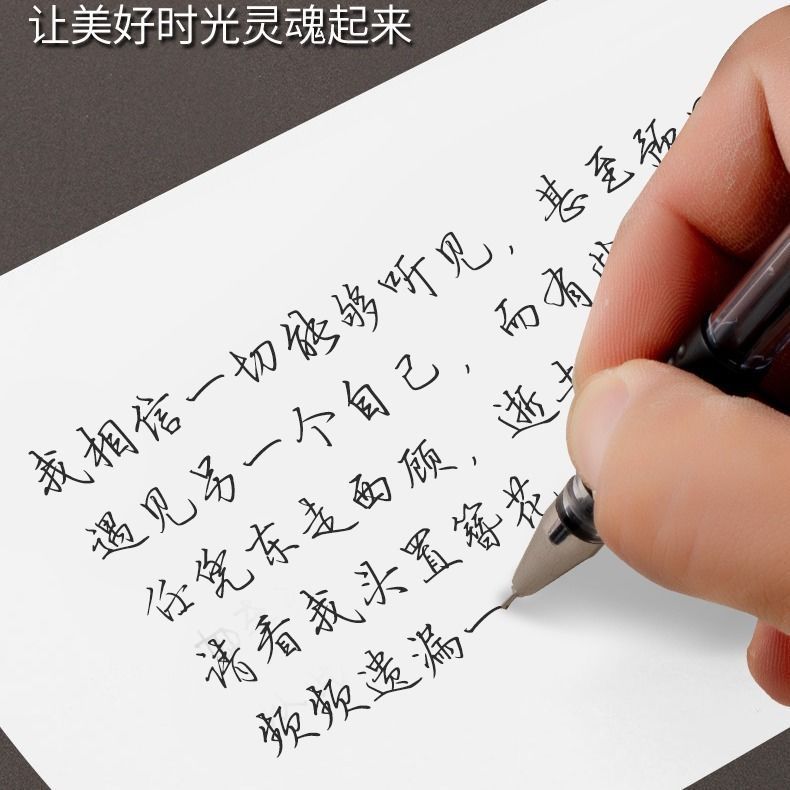 让美好时光灵魂起来
我相信一切能够听见，甚至预
遇见另一个自己，而有些
任凭东走西顾，逝去
请看我头置簪花
频频遗漏一